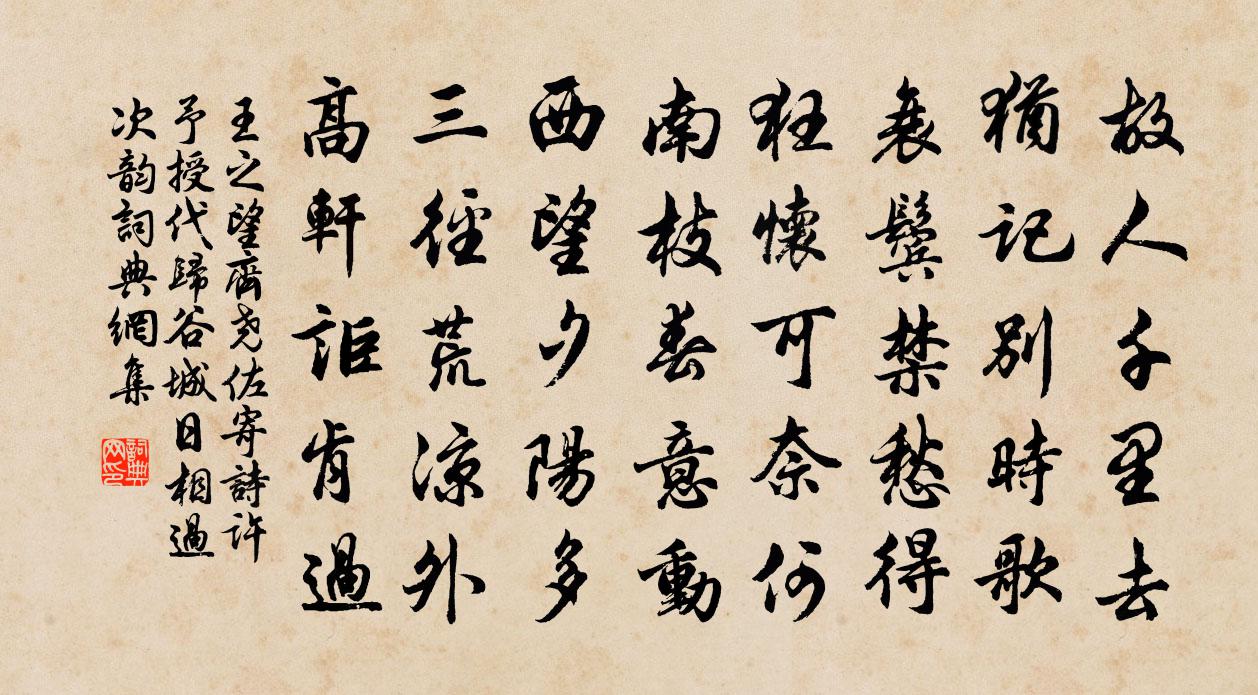 故人千里去
猶記別時歌
衰鬢禁愁得
狂懷可奈何
南枝春意動
西望夕陽多
三徑荒涼外
高軒詎肯過
王之望齊尧佐寄詩許
予授代歸谷城日相過
次韵詞典網集
詞典
网印